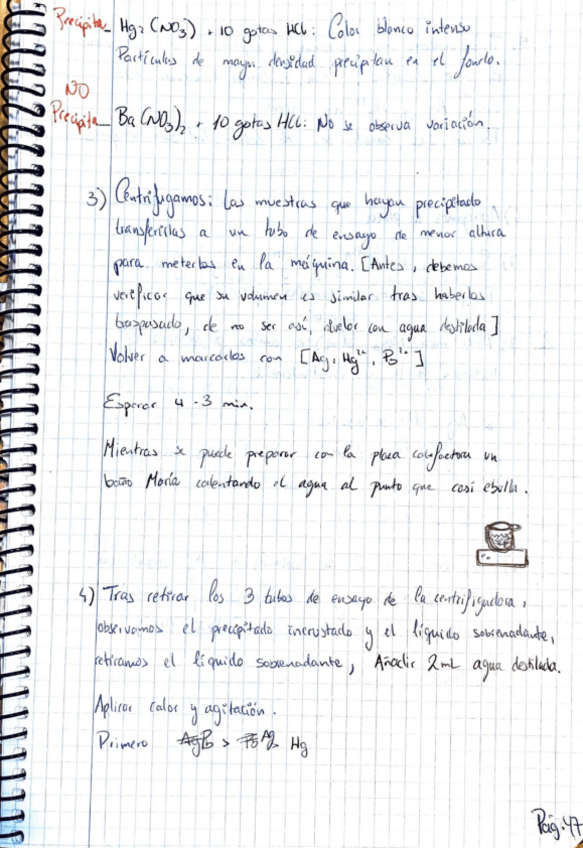 Precipita - Hg₂(NO₃) + 10 gotas HCl: Color blanco intenso
Partículas de mayor densidad precipitan en el fondo.
NO
Precipita - Ba(NO₃)₂ + 10 gotas HCl: No se observa variación.
3) Centrifugamos: Las muestras que hayan precipitado
transferirlas a un tubo de ensayo de menor altura
para meterlos en la máquina. [Antes, debemos
verificar que su volumen es similar tras haberlos
traspasado, de no ser así, con agua destilada]
Volver a marcarlos con [Ag, Hg²⁺, Pb²⁺]
Esperar 4-3 min.
Mientras se puede preparar con la placa calefactora un
baño María calentando el agua al punto que casi ebulla.
4) Tras retirar los 3 tubos de ensayo de la centrifugadora,
observamos el precipitado incrustado y el líquido sobrenadante,
retiramos el líquido sobrenadante, Añadir 2 mL agua destilada.
Aplicar calor y agitación.
Primero > Ag Hg
Pág. 47